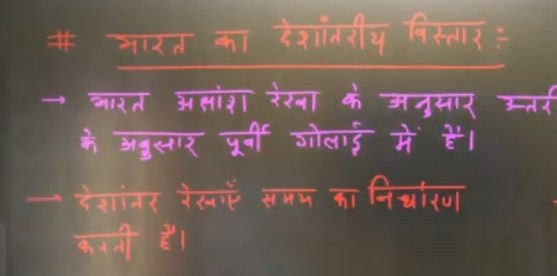 # भारत का देशांतरीय विस्तार :-
→ भारत अक्षांश रेखा के अनुसार उत्तरी
के अनुसार पूर्वी गोलार्द्ध में है।
→ देशांतर रेखाएँ समय का निर्धारण
करती है।